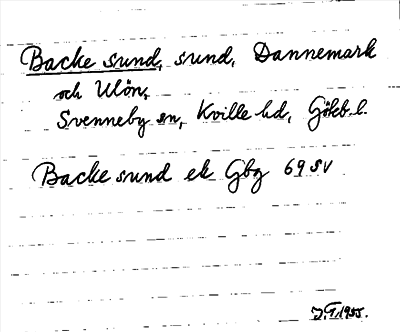 Backe sund, sund, Dannemark
och Ulön,
Svenneby sn, Kville hd, Göteb. l.
Backe sund ek Gbg 69 SV
1955.